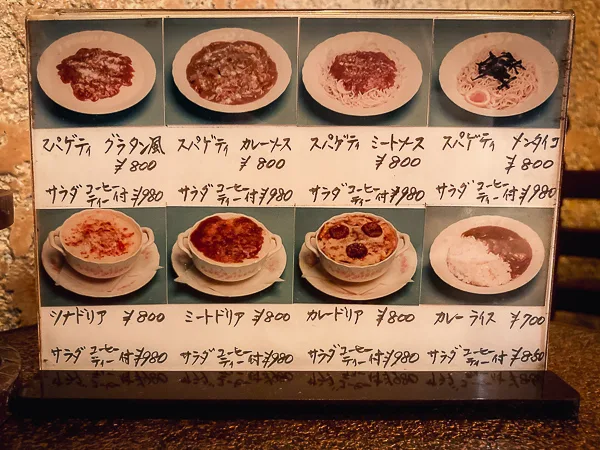 スパゲティ グラタン風
¥800
サラダ コーヒー ティー 付 ¥980
スパゲティ カレーソース
¥800
サラダ コーヒー ティー 付 ¥980
スパゲティ ミートソース
¥800
サラダ コーヒー ティー 付 ¥980
スパゲティ メンタイコ
¥800
サラダ コーヒー ティー 付 ¥980
ツナドリア ¥800
サラダ コーヒー ティー 付 ¥980
ミートドリア ¥800
サラダ コーヒー ティー 付 ¥980
カレードリア ¥800
サラダ コーヒー ティー 付 ¥980
カレーライス ¥700
サラダ コーヒー ティー 付 ¥850